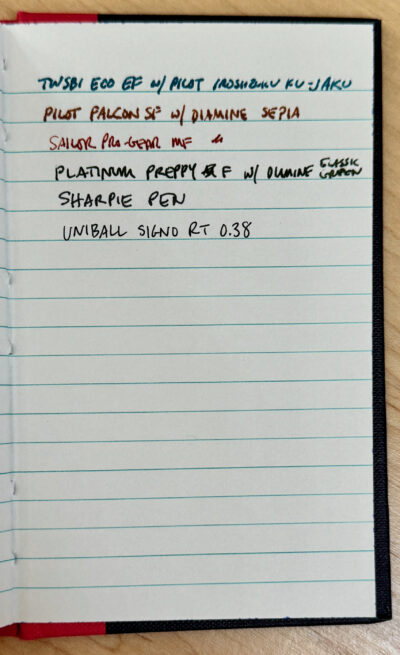 TWSBI ECO EF w/ PILOT IROSHIZUKU KU-JAKU
PILOT FALCON SF w/ DIAMINE SEPIA
SAILOR PRO-GEAR MF "
PLATINUM PREPPY F w/ DIAMINE CLASSIC GREEN
SHARPIE PEN
UNIBALL SIGNO RT 0.38